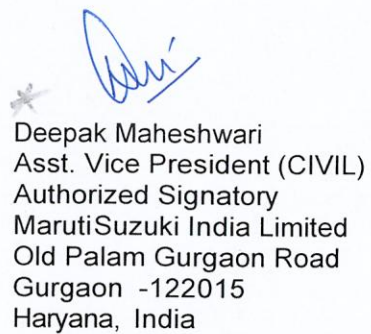 Deepak Maheshwari
Asst. Vice President (CIVIL)
Authorized Signatory
MarutiSuzuki India Limited
Old Palam Gurgaon Road
Gurgaon -122015
Haryana, India